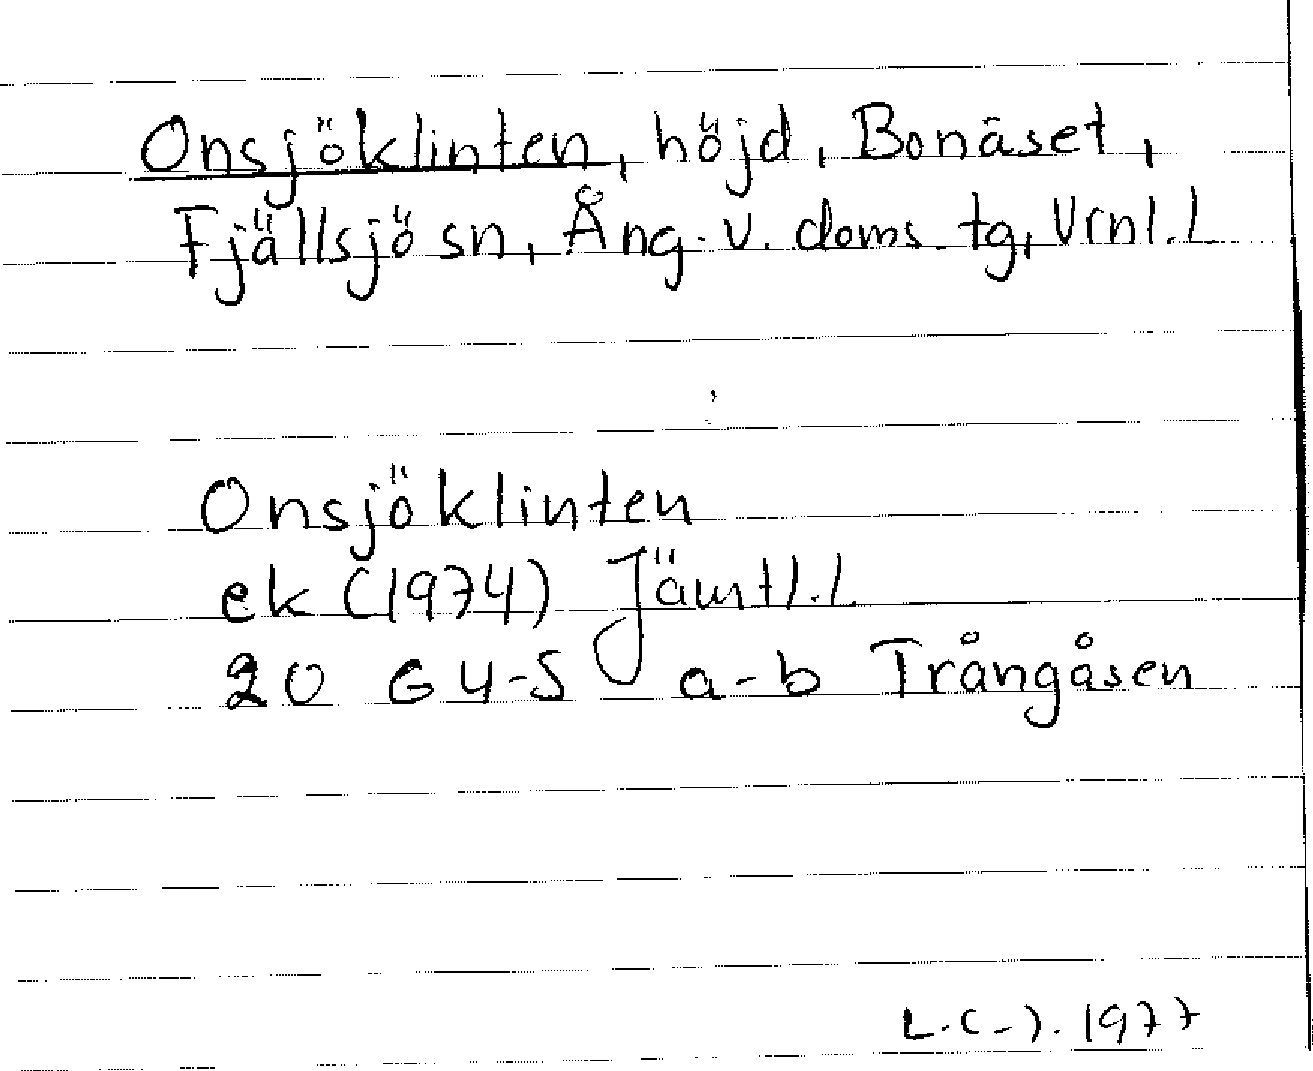 Onsjöklinten, höjd, Bonäset,
Fjällsjö sn, Ång. v. doms. tg, Vrnl. L
Onsjöklinten
ek (1974) Jämtl. L
20 G 4-5 a-b Trångåsen
L.C-J. 1977